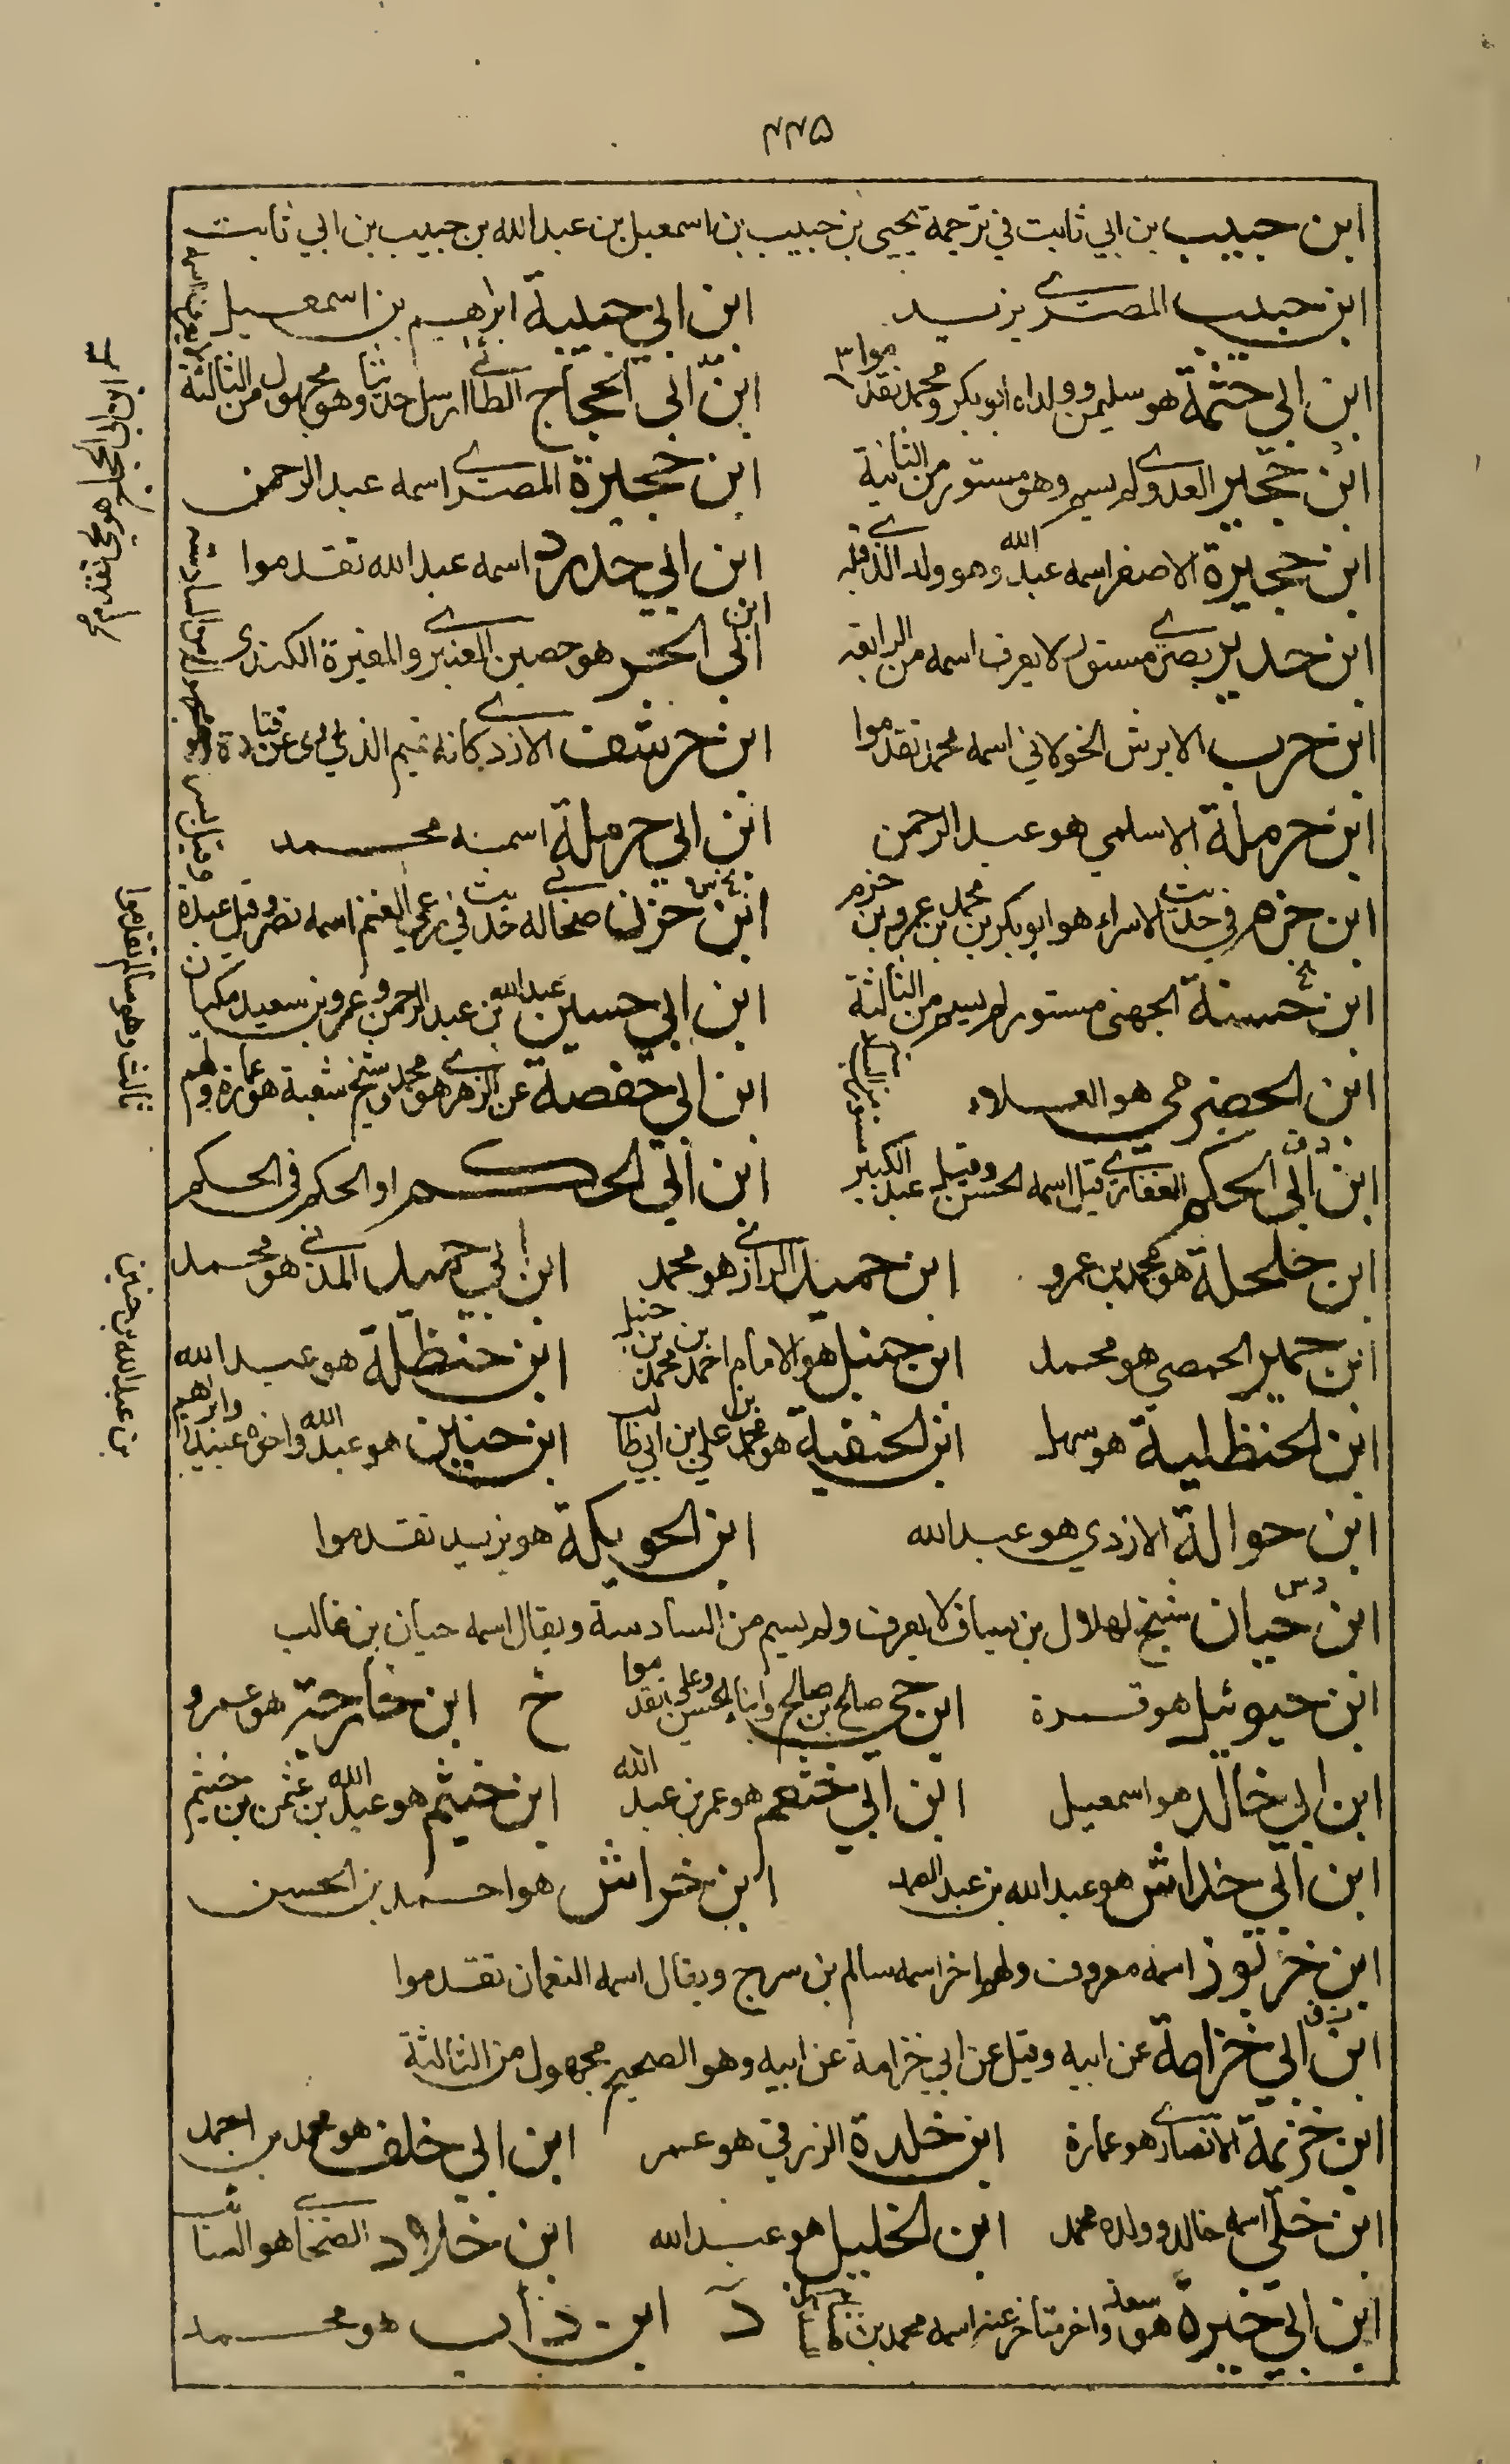 ۴۴۵
ابن حبيب بن ابي ثابت في ترجمة يحيى بن حبيب بن اسمعيل بن عبد الله بن حبيب بن ابي ثابت
ابن حبيب المصري يزيد ابن ابي حبيبة ابرهيم بن اسمعيل
ابن ابي حثمة هو سليمن وولداه ابوبكر ومحمد تقدموا ٣ ابن ابي الحجاج الطائي ارسل حديثا وهو مجهول من الثالثة
ابن حجير العدوي لم يسم وهو مستور من الثانية ابن حجيرة المصري اسمه عبد الرحمن
ابن حجيرة الاصغر اسمه عبد الله وهو ولد الذي قبله ابن ابي حدرد اسمه عبد الله تقدموا
ابن حدير بصري مستور لا يعرف اسمه من الرابعة ابن ابي الحر هو حصين العنبري والمغيرة الكندي
ابن حرب الابرش الخولاني اسمه محمد تقدموا ابن حرشف الازدي كانه تميم الذي روى عن قتادة
ابن حرملة الاسلمي هو عبد الرحمن ابن ابي حرملة اسمه محمد
ابن حزم في حديث الاسراء هو ابوبكر بن محمد بن عمرو بن حزم ابن حزن صحابي له حديث في رعي الغنم اسمه نصر وقيل عبدة
ابن حسنة الجهني مستور لم يسم من الثالثة ابن ابي حسين عبد الله بن عبد الرحمن وعمرو بن سعيد مكيان
ابن الحضرمي هو العلاء ابن ابي حفصة عن الزهري هو محمد وشيخ شعبة هو عمارة ولهم
ابن ابي الحكم الغفاري قيل اسمه الحسن وقيل عبد الكبير ابن ابي الحكم او الحكم في الحكم
ابن حلحلة هو محمد بن عمرو ابن حميد الرازي هو محمد ابن ابي حميد المدني هو محمد
ابن حمير الحمصي هو محمد ابن حنبل هو الامام احمد بن محمد بن حنبل ابن حنظلة هو عبد الله
ابن الحنظلية هو سهل ابن الحنفية هو محمد بن علي بن ابي طالب ابن حنين هو عبد الله واخوه عبيد وابرهيم
ابن حوالة الازدي هو عبد الله ابن الحوتكية هو يزيد تقدموا
ابن حيان شيخ لهلال بن يساف لا يعرف ولم يسم من السادسة ويقال اسمه حيان بن غالب
ابن حيوئيل هو قرة ابن حي صالح بن صالح وابناه الحسن وعلي تقدموا خ ابن خارجة هو عمرو
ابن ابي خالد هو اسمعيل ابن ابي خثعم هو عمر بن عبد الله ابن خثيم هو عبد الله بن عثمن بن خثيم
ابن ابي خداش هو عبد الله بن عبد الصمد ابن خراش هو احمد بن الحسن
ابن خربوذ اسمه معروف ولهم اخر اسمه سالم بن سرج ويقال اسمه النعمان تقدموا
ابن ابي خزامة عن ابيه وقيل عن ابي خزامة عن ابيه وهو الصحيح مجهول من الثالثة
ابن خزيمة الانصاري هو عمارة ابن خلدة الزرقي هو عمر ابن ابي خلف هو محمد بن احمد
ابن خلي اسمه خالد وولده محمد ابن الخليل هو عبد الله ابن خلاد الصحابي هو السائب
ابن ابي خيرة هو واخر متاخر عنه اسمه محمد بن د ابن داب هو محمد
ابن ابي المجالد هو محمد تقدم
لا يعرف اسمه
وهو مجهول من السادسة
ثالث وهو سالم تقدموا
بن عبد الله بن حنين